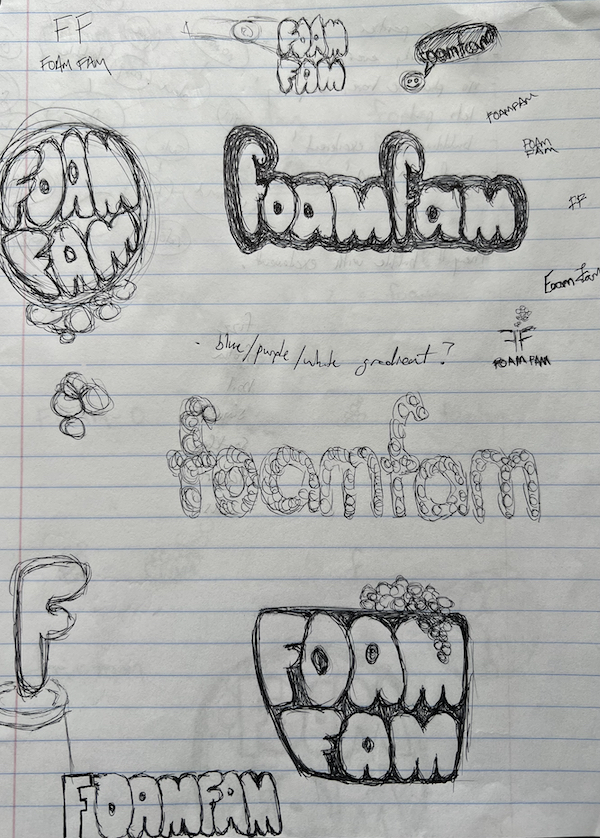 FF
FOAM FAM
FOAM
FAM
foamfam
FOAMFAM
FOAM
FAM
FF
FOAM
FAM
foamfam
Foamfam
FF
FOAMFAM
- blue/purple/white gradient?
foamfam
F
FOAM
FAM
FOAMFAM